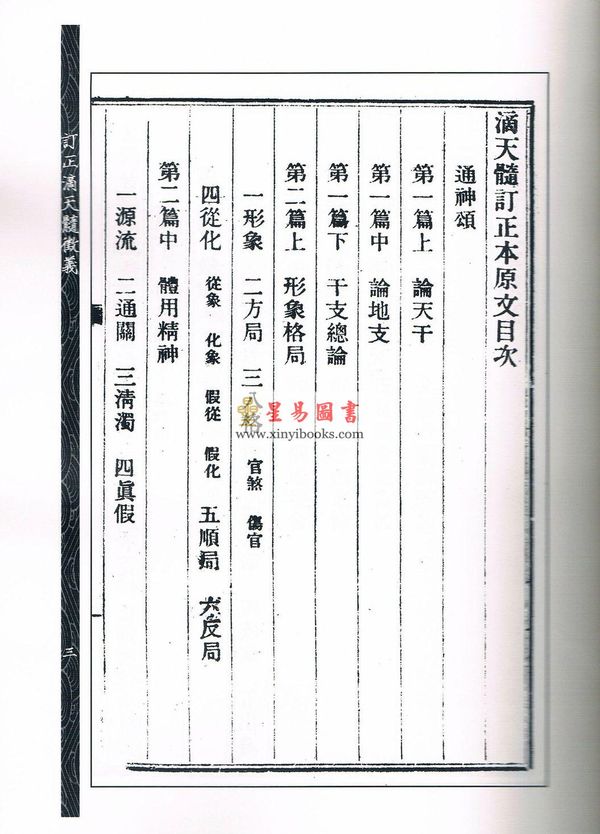 滴天髓訂正本原文目次
通神頌
第一篇上 論天干
第一篇中 論地支
第一篇下 干支總論
第二篇上 形象格局
一形象 二方局 三八格 官煞 傷官
四從化 從象 化象 假從 假化 五順局 六反局
第二篇中 體用精神
一源流 二通關 三清濁 四眞假
訂正滴天髓徵義
三
星易圖書
www.xinyibooks.com